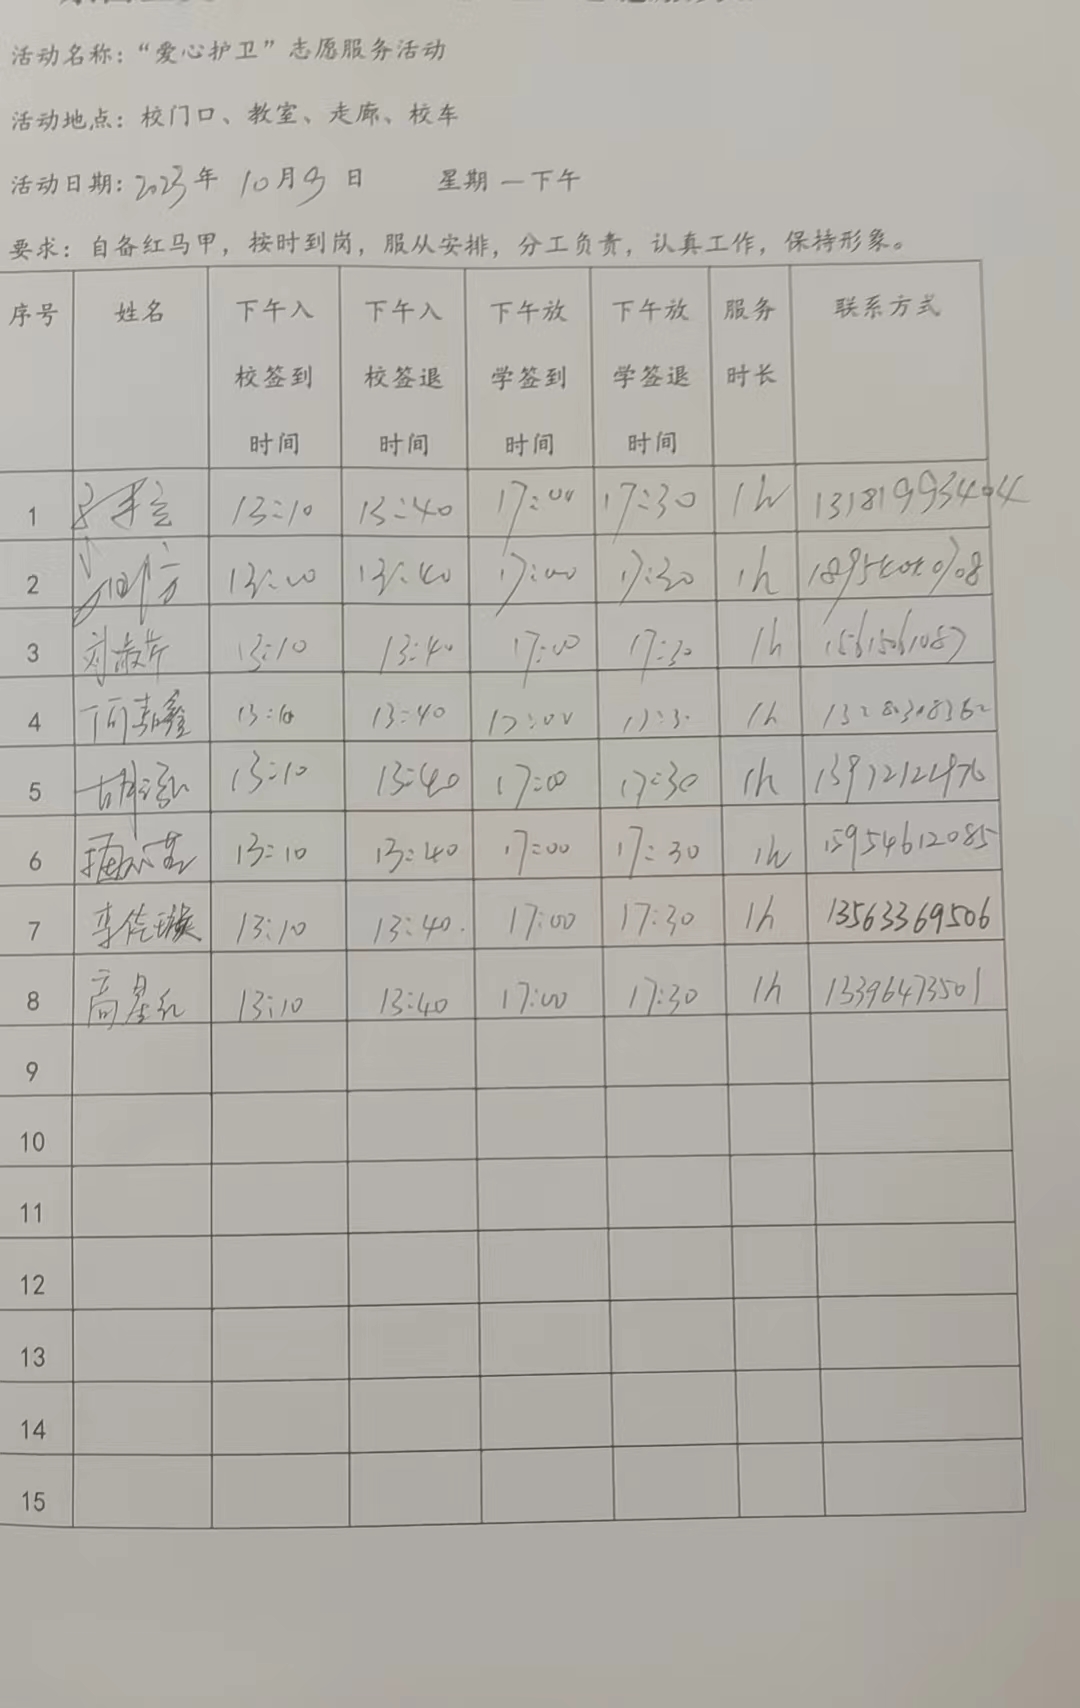 活动名称：“爱心护卫”志愿服务活动
活动地点：校门口、教室、走廊、校车
活动日期：2023年 10月9日 星期一下午
要求：自备红马甲，按时到岗，服从安排，分工负责，认真工作，保持形象。
序号 姓名 下午入校签到时间 下午入校签退时间 下午放学签到时间 下午放学签退时间 服务时长 联系方式
1 13:10 13:40 17:00 17:30 1h 13181993404
2 13:40 17:00 17:30 1h
3 刘淑芹 13:10 13:40 17:00 17:30 1h 15615061087
4 13:10 13:40 17:00 17:30 1h
5 13:10 13:40 17:00 17:30 1h
6 13:10 13:40 17:00 17:30 1h 15954612085
7 13:10 13:40 17:00 17:30 1h 13563369506
8 高星红 13:10 13:40 17:00 17:30 1h 13396473501
9
10
11
12
13
14
15